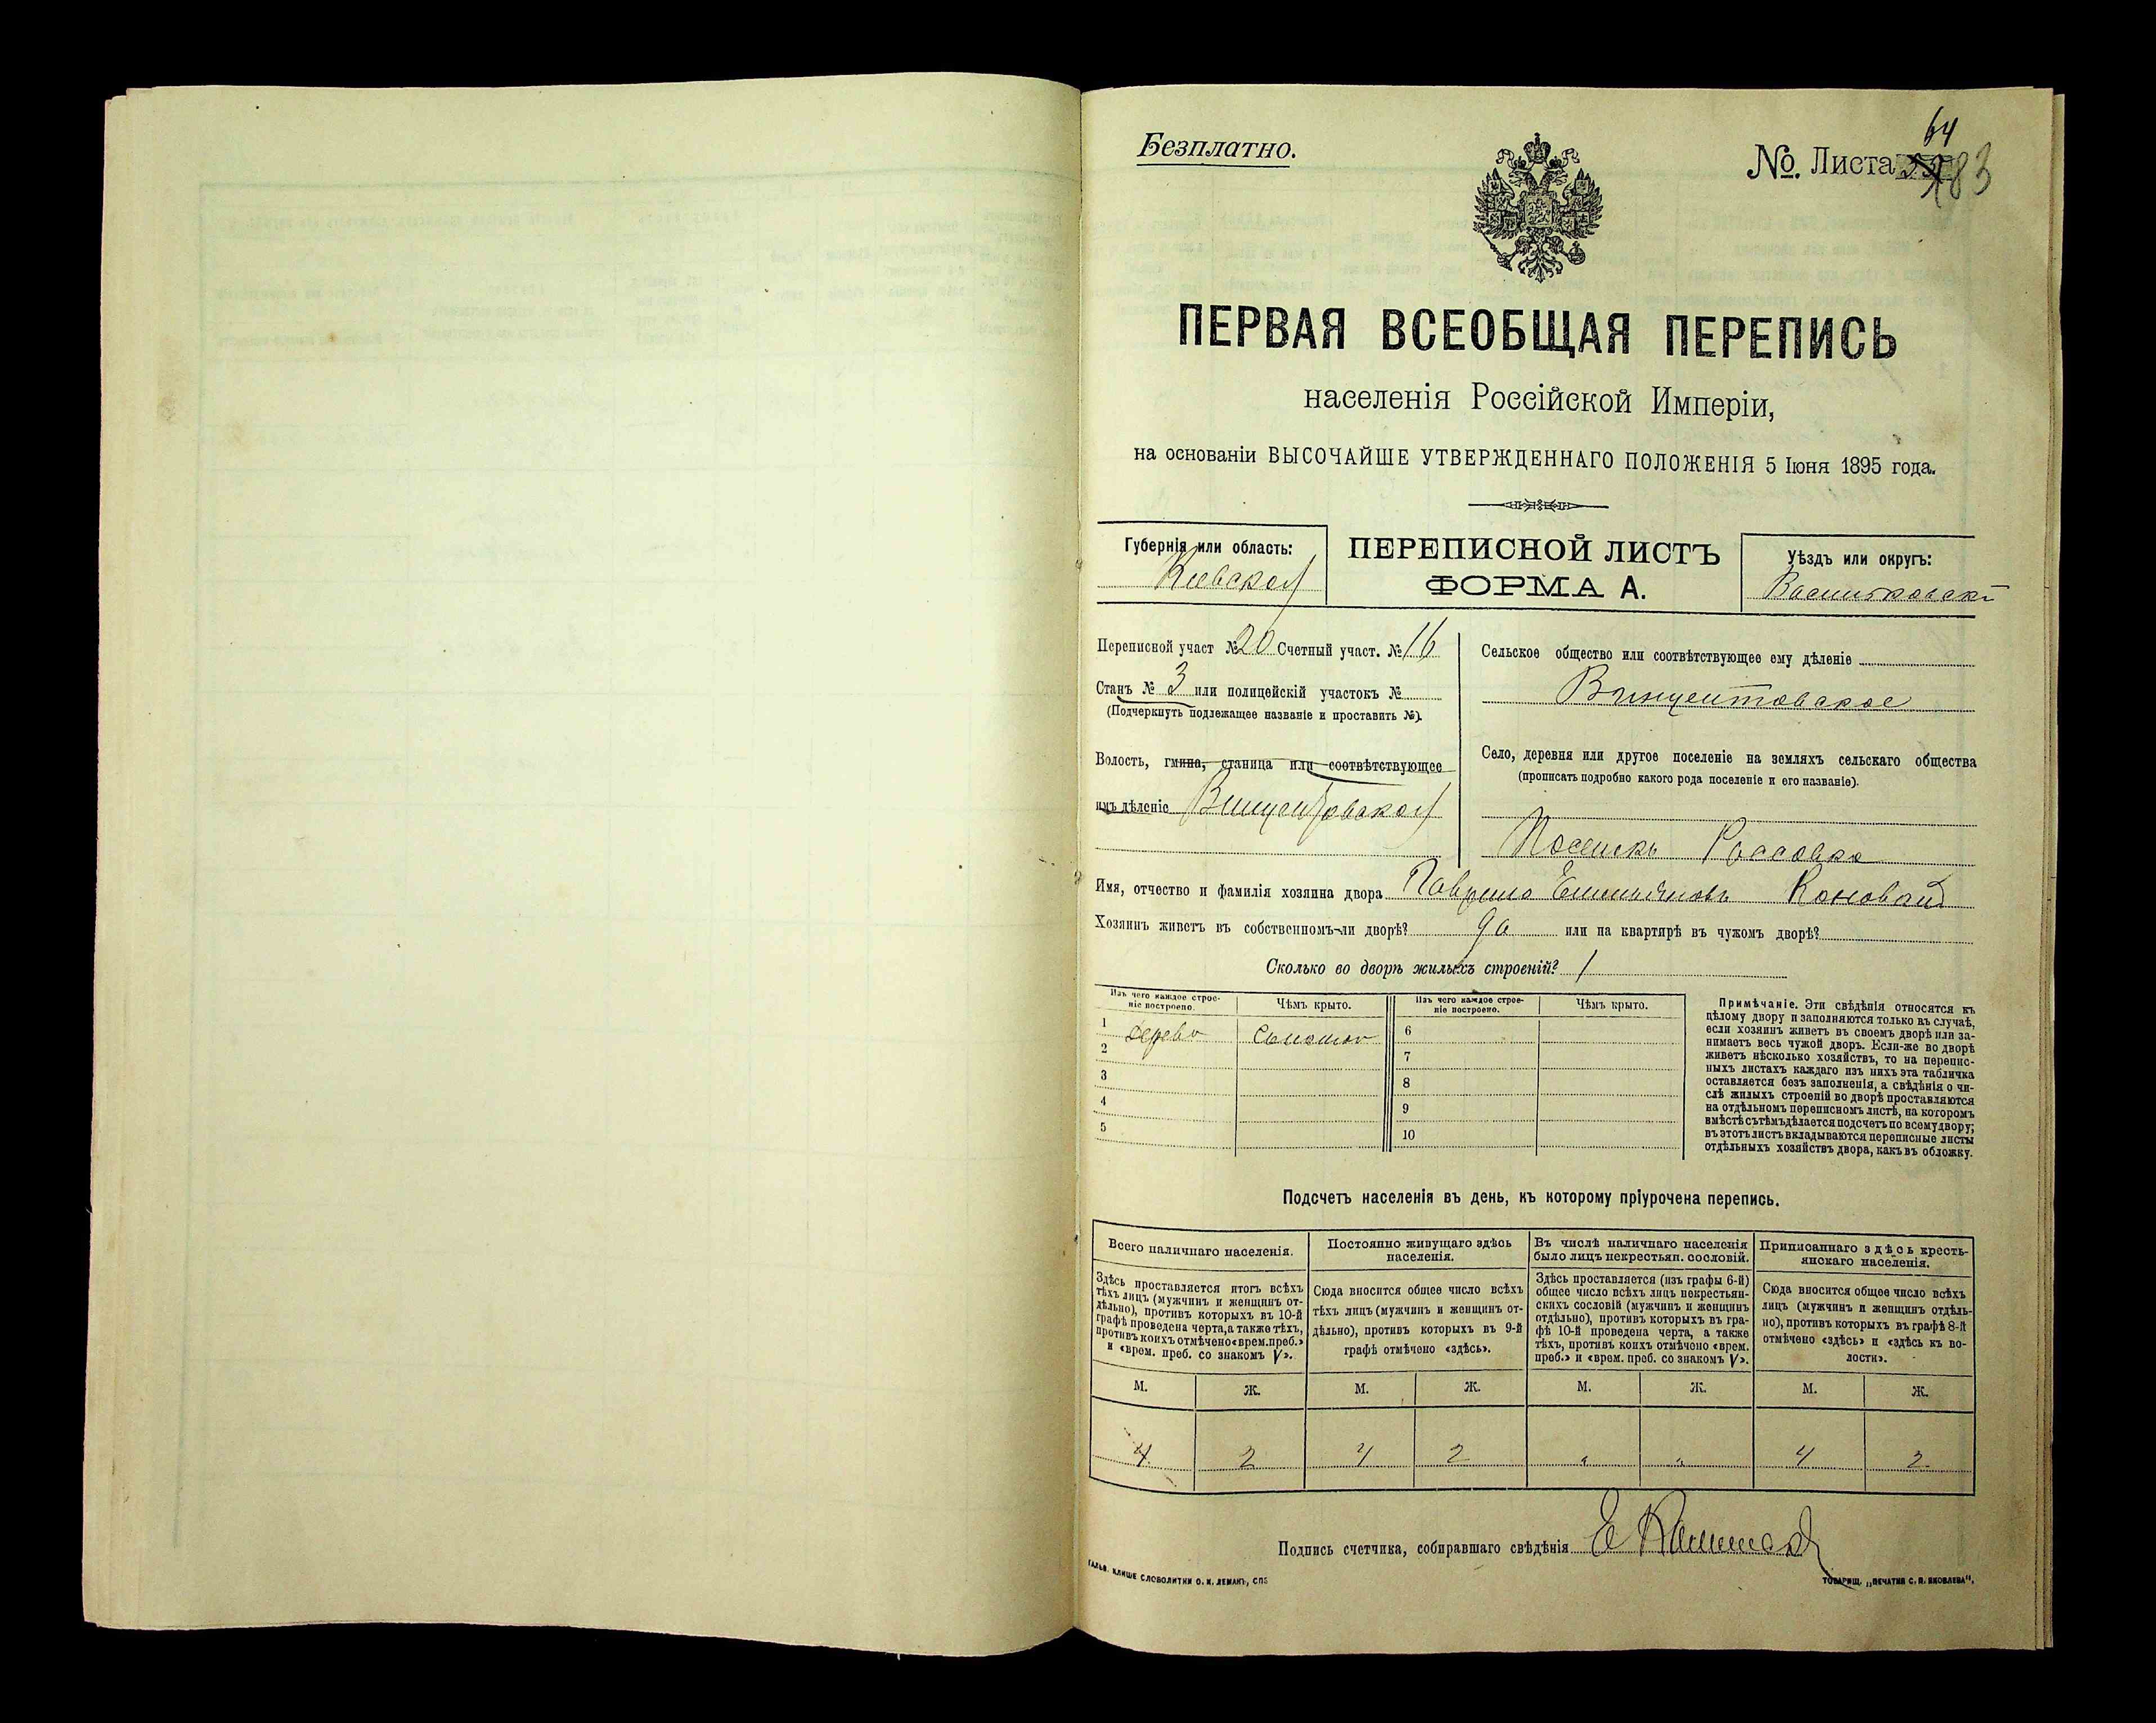 Безплатно.
№. Листа 64
183
ПЕРВАЯ ВСЕОБЩАЯ ПЕРЕПИСЬ
населенія Россійской Имперіи,
на основаніи ВЫСОЧАЙШЕ УТВЕРЖДЕННАГО ПОЛОЖЕНІЯ 5 Іюня 1895 года.
Губернія или область:
Кіевская
ПЕРЕПИСНОЙ ЛИСТЪ
ФОРМА А.
Уѣздъ или округъ:
Васильковскі
Переписной участ №20 Счетный участ. №16
Станъ № 3 или полицейскій участокъ №
(Подчеркнуть подлежащее названіе и проставить №).
Волость, гмина, станица или соотвѣтствующее
имъ дѣленіе Винцентовская
Сельское общество или соотвѣтствующее ему дѣленіе
Винцентовское
Село, деревня или другое поселеніе на земляхъ сельскаго общества
(прописать подробно какого рода поселеніе и его названіе).
Имя, отчество и фамилія хозяина двора Гаврило Коновал
Хозяинъ живетъ въ собственномъ-ли дворѣ? да или на квартирѣ въ чужомъ дворѣ?
Сколько во дворѣ жилыхъ строеній? 1
Изъ чего каждое строе-
ніе построено.
Чѣмъ крыто.
Изъ чего каждое строе-
ніе построено.
Чѣмъ крыто.
1 дерево соломою 6
2 7
3 8
4 9
5 10
Примѣчаніе. Эти свѣдѣнія относятся къ
цѣлому двору и заполняются только въ случаѣ,
если хозяинъ живетъ въ своемъ дворѣ или за-
нимаетъ весь чужой дворъ. Если-же во дворѣ
живетъ нѣсколько хозяйствъ, то на перепис-
ныхъ листахъ каждаго изъ нихъ эта табличка
оставляется безъ заполненія, а свѣдѣнія о чи-
слѣ жилыхъ строеній во дворѣ проставляются
на отдѣльномъ переписномъ листѣ, на которомъ
вмѣстѣ съ тѣмъ дѣлается подсчетъ по всему двору;
въ этотъ листъ вкладываются переписные листы
отдѣльныхъ хозяйствъ двора, какъ въ обложку.
Подсчетъ населенія въ день, къ которому пріурочена перепись.
Всего наличнаго населенія.
Здѣсь проставляется итогъ всѣхъ
тѣхъ лицъ (мужчинъ и женщинъ от-
дѣльно), противъ которыхъ въ 10-й
графѣ проведена черта, а также тѣхъ,
противъ коихъ отмѣчено «врем. преб.»
и «врем. преб. со знакомъ V».
Постоянно живущаго здѣсь
населенія.
Сюда вносится общее число всѣхъ
тѣхъ лицъ (мужчинъ и женщинъ от-
дѣльно), противъ которыхъ въ 9-й
графѣ отмѣчено «здѣсь».
Въ числѣ наличнаго населенія
было лицъ некрестьян. сословій.
Здѣсь проставляется (изъ графы 6-й)
общее число всѣхъ лицъ некрестьян-
скихъ сословій (мужчинъ и женщинъ
отдѣльно), противъ которыхъ въ гра-
фѣ 10-й проведена черта, а также
тѣхъ, противъ коихъ отмѣчено «врем.
преб.» и «врем. преб. со знакомъ V».
Приписаннаго здѣсь кресть-
янскаго населенія.
Сюда вносится общее число всѣхъ
лицъ (мужчинъ и женщинъ отдѣль-
но), противъ которыхъ въ графѣ 8-й
отмѣчено «здѣсь» и «здѣсь къ во-
лости».
М. Ж. М. Ж. М. Ж. М. Ж.
4 2 4 2 " " 4 2
Подпись счетчика, собиравшаго свѣдѣнія
ГАЛЬВ. КЛИШЕ СЛОВОЛИТНИ О. И. ЛЕМАНЪ, СПБ
ТОВАРИЩ. „ПЕЧАТНЯ С. П. ЯКОВЛЕВА".